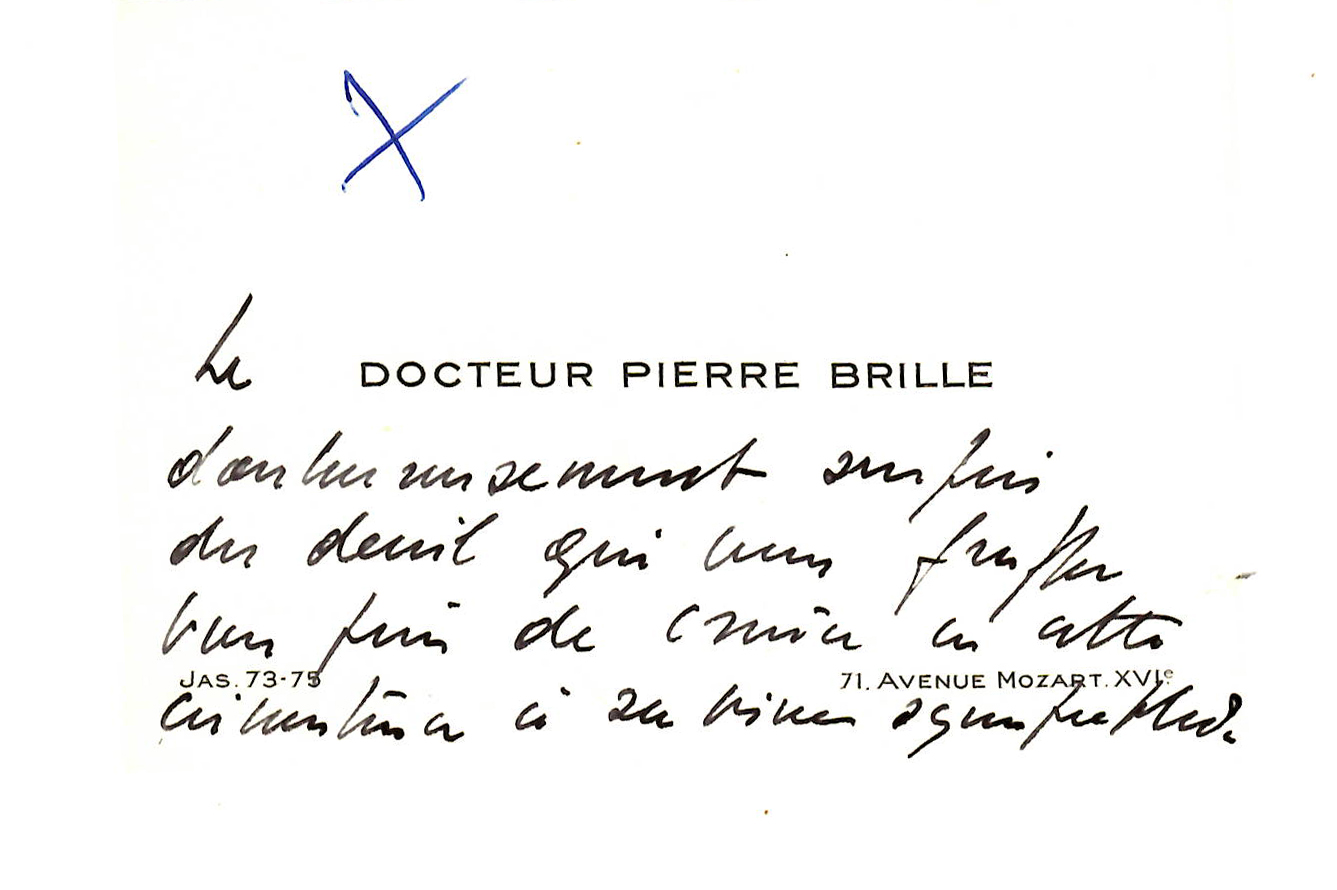 Le DOCTEUR PIERRE BRILLE
douloureusement surpris
du deuil qui vous frappe
vous prie de croire en cette
JAS. 73-75 71. AVENUE MOZART. XVIe
circonstance à sa vive sympathie.